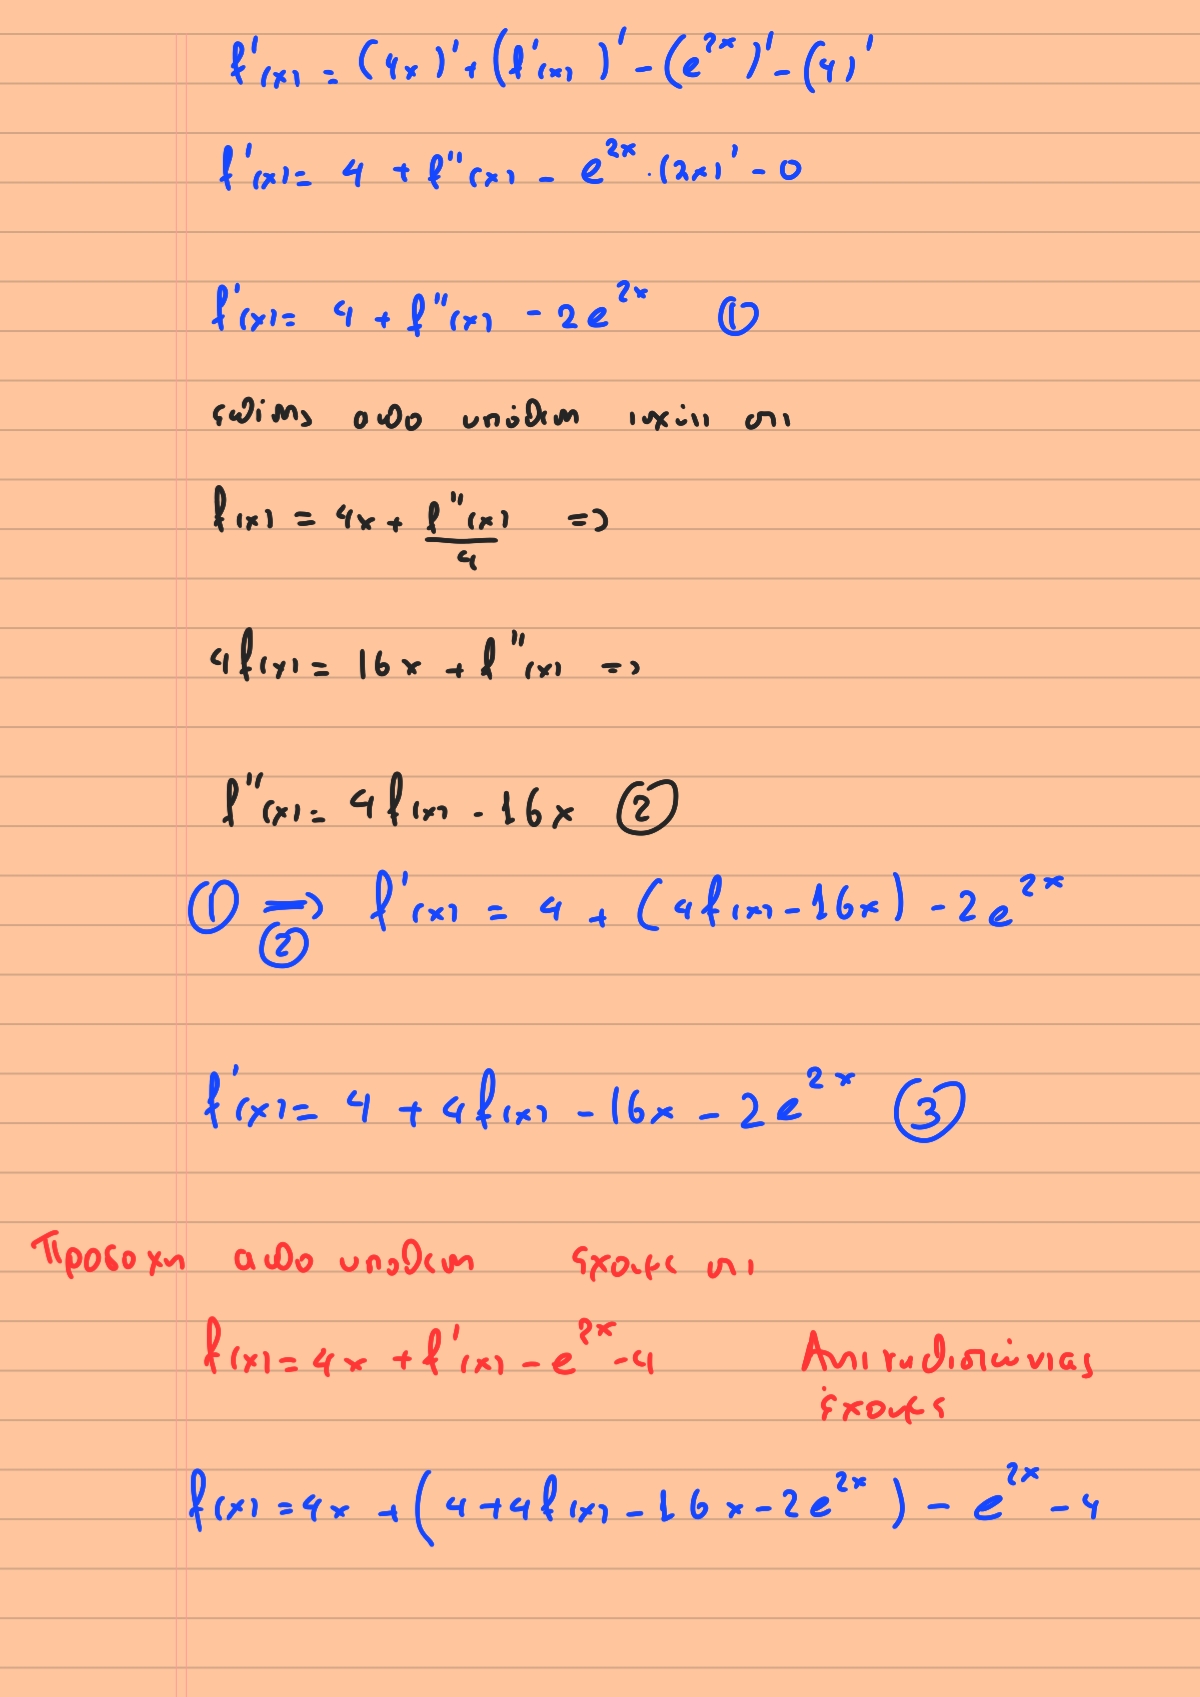 f'(x) = (4x)' + (f'(x))' - (e^{2x})' - (4)'
f'(x) = 4 + f''(x) - e^{2x} · (2x)' - 0
f'(x) = 4 + f''(x) - 2e^{2x} ①
επίσης από υπόθεση ισχύει οτι
f(x) = 4x + f''(x)/4 =>
4f(x) = 16x + f''(x) =>
f''(x) = 4f(x) - 16x ②
① => ② f'(x) = 4 + (4f(x) - 16x) - 2e^{2x}
f'(x) = 4 + 4f(x) - 16x - 2e^{2x} ③
Προσοχη απο υποθεση εχουμε οτι
f(x) = 4x + f'(x) - e^{2x} - 4 Αντικαθιστώντας
έχουμε
f(x) = 4x + (4 + 4f(x) - 16x - 2e^{2x}) - e^{2x} - 4